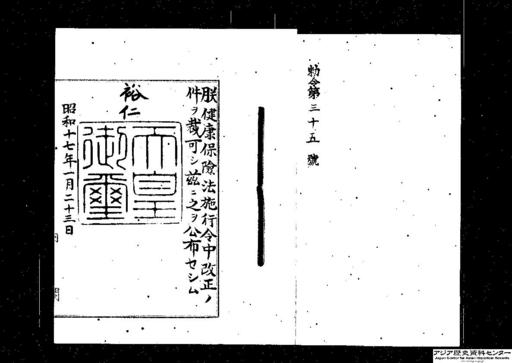 勅令第三十五號
朕健康保險法施行令中改正ノ
件ヲ裁可シ茲ニ之ヲ公布セシム
裕仁
天皇
御璽
昭和十七年一月二十三日
内閣
アジア歴史資料センター
Japan Center for Asian Historical Records